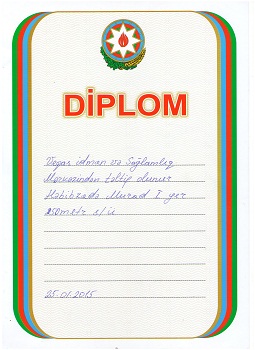 DİPLOM
Vegas idman və Sağlamlıq
Mərkəzindən təltif olunur
Həbibzadə Murad I yer
250metr s/ü
25.01.2015